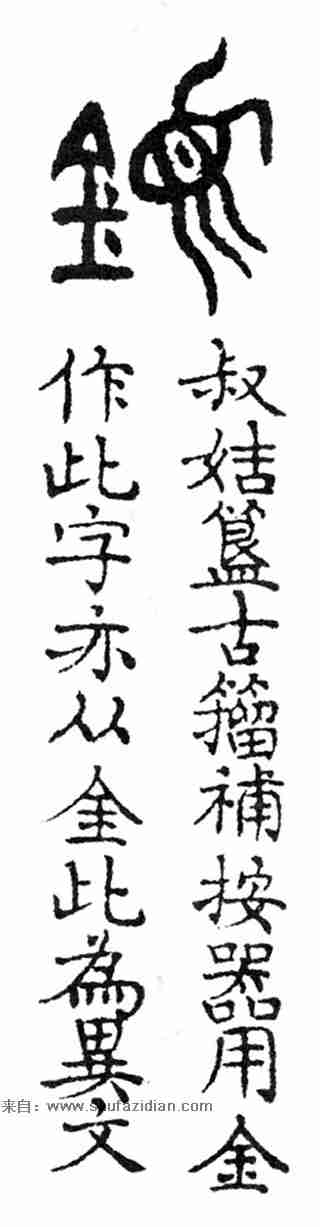 叔姞簋古籕補按器用金
作此字亦从金此為異文
来自：www.shufazidian.com